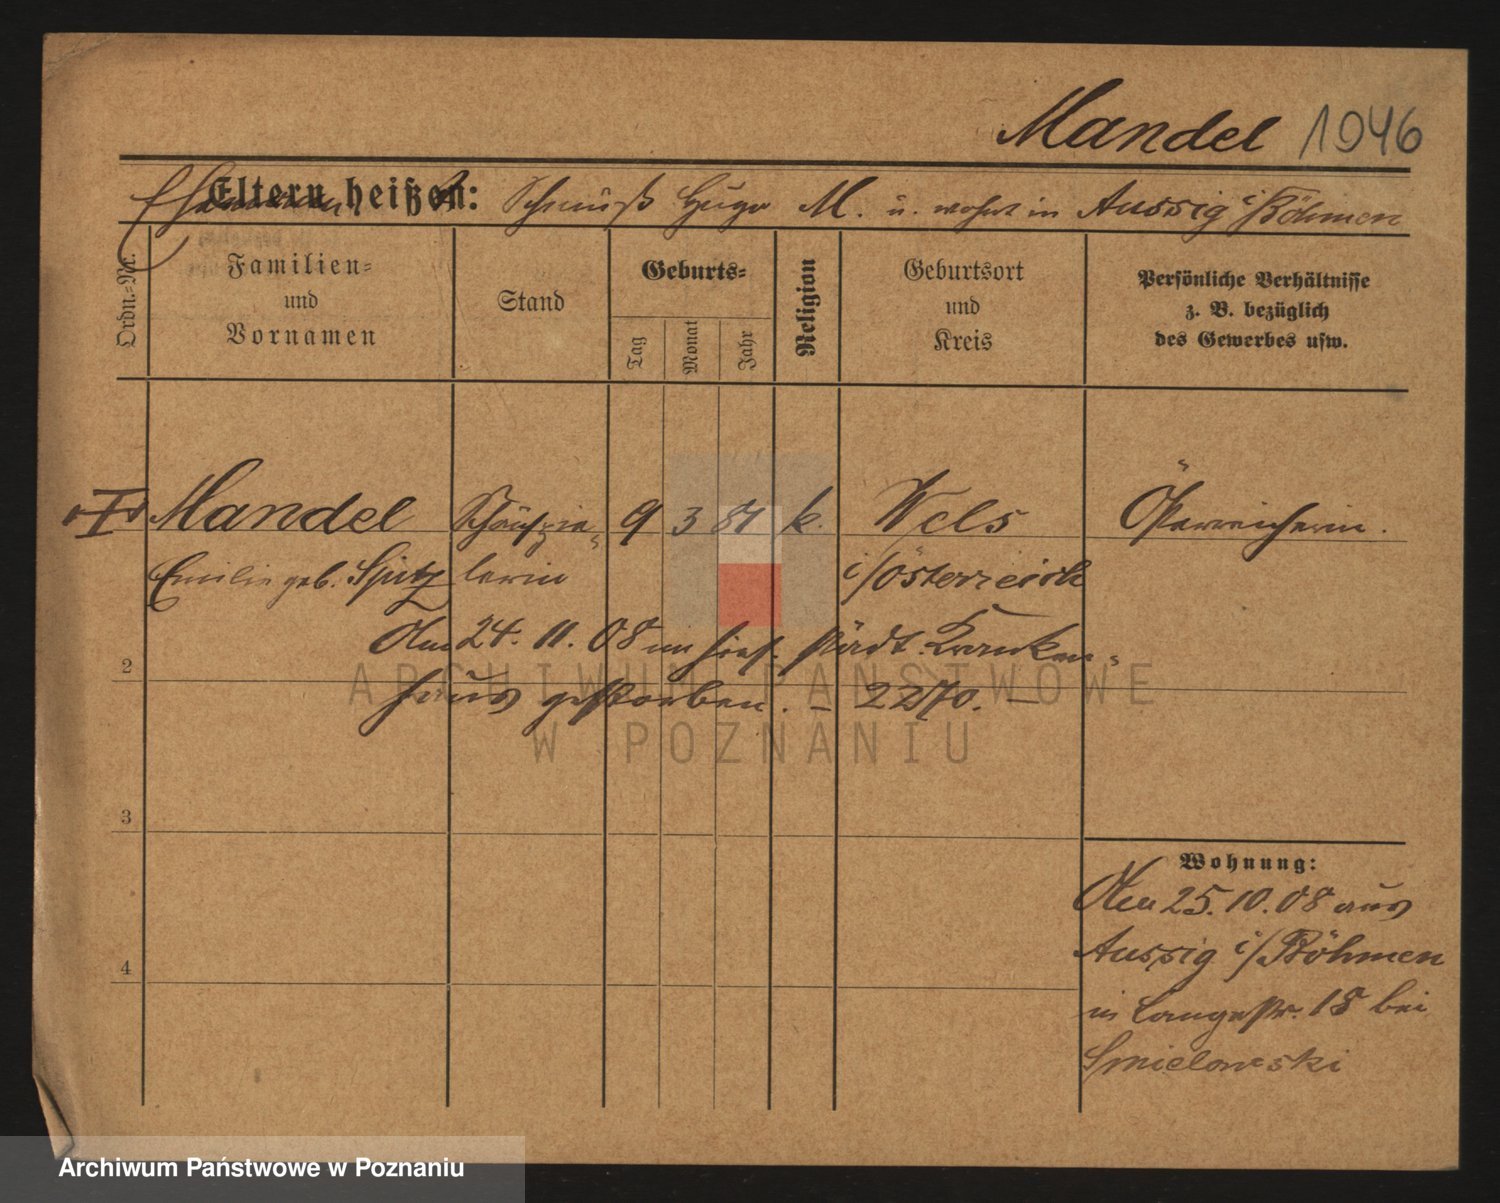 Mandel 1946
Eltern heißen:
Ehemann heißt Hugo M. u. wohnt in Aussig i/Böhmen
Ordn.-Nr.
Familien-
und
Vornamen
Stand
Geburts-
Tag
Monat
Jahr
Religion
Geburtsort
und
Kreis
Persönliche Verhältnisse
z. B. bezüglich
des Gewerbes usw.
I Mandel Schauspie- 9 3 87 k. Wels Österreicherin.
Emilie geb. Spitz lerin i/Österreich
Am 24. 11. 08 im hies. städt. Kranken-
2
haus gestorben. - 2270. -
ARCHIWUM PAŃSTWOWE
W POZNANIU
3
4
Wohnung:
Am 25. 10. 08 aus
Aussig i/Böhmen
in Langestr. 18 bei
Smielowski
Archiwum Państwowe w Poznaniu